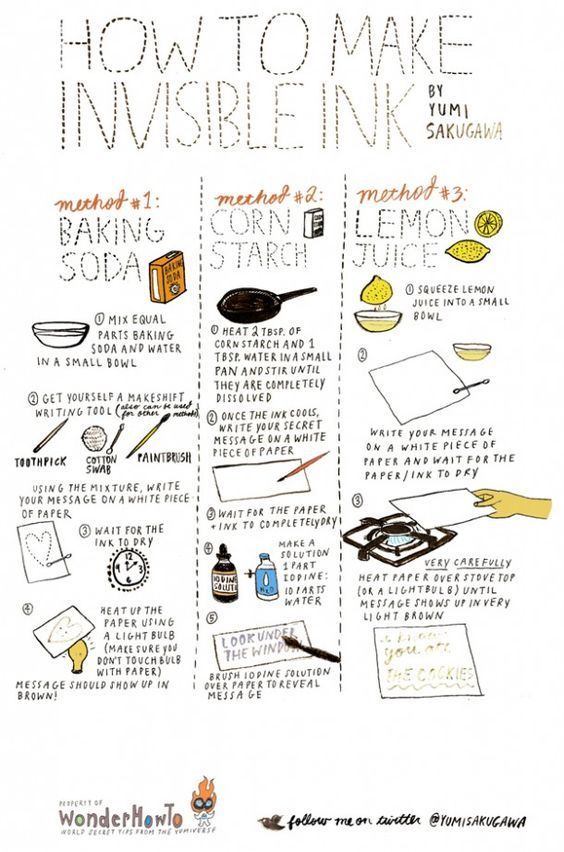 HOW TO MAKE
INVISIBLE INK
BY
YUMI
SAKUGAWA
method #1:
BAKING
SODA
BAKING
SODA
① MIX EQUAL
PARTS BAKING
SODA AND WATER
IN A SMALL BOWL
② GET YOURSELF A MAKESHIFT
WRITING TOOL (also can be used
for other methods)
TOOTHPICK
COTTON
SWAB
PAINTBRUSH
USING THE MIXTURE, WRITE
YOUR MESSAGE ON A WHITE PIECE
OF PAPER
③ WAIT FOR THE
INK TO DRY
④ HEAT UP THE
PAPER USING
A LIGHT BULB
(MAKE SURE YOU
DON'T TOUCH BULB
WITH PAPER)
MESSAGE SHOULD SHOW UP IN
BROWN!
method #2:
CORN
STARCH
CORN
STARCH
① HEAT 2 TBSP. OF
CORNSTARCH AND 1
TBSP. WATER IN A SMALL
PAN AND STIR UNTIL
THEY ARE COMPLETELY
DISSOLVED
② ONCE THE INK COOLS,
WRITE YOUR SECRET
MESSAGE ON A WHITE
PIECE OF PAPER
③ WAIT FOR THE PAPER
+ INK TO COMPLETELY DRY
④ MAKE A
SOLUTION
1 PART
IODINE:
10 PARTS
WATER
IODINE
H2O
⑤
LOOK UNDER
THE WINDOW
BRUSH IODINE SOLUTION
OVER PAPER TO REVEAL
MESSAGE
method #3:
LEMON
JUICE
① SQUEEZE LEMON
JUICE INTO A SMALL
BOWL
②
WRITE YOUR MESSAGE
ON A WHITE PIECE OF
PAPER AND WAIT FOR THE
PAPER/INK TO DRY
③
VERY CAREFULLY
HEAT PAPER OVER STOVE TOP
(OR A LIGHTBULB) UNTIL
MESSAGE SHOWS UP IN VERY
LIGHT BROWN
I know
you ate
THE COOKIES
PROPERTY OF
WonderHowTo
WORLD SECRET TIPS FROM THE YUMIVERSE
follow me on twitter @YUMISAKUGAWA